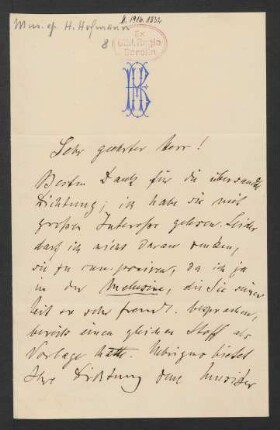 Mus. ep. H. Hofmann
8
Ex
Bibl. Regia
Berolin.
Sehr geehrter Herr!
Besten Dank für die übersandte
Dichtung; ich habe sie mit
großem Interesse gelesen. Leider
darf ich nicht daran denken,
sie zu componiren, da ich ja
in der Melusine, die Sie seiner
Zeit so sehr freundl. besprachen,
bereits einen gleichen Stoff als
Vorlage hatte. Uebrigens bietet
Ihre Dichtung dem Musiker